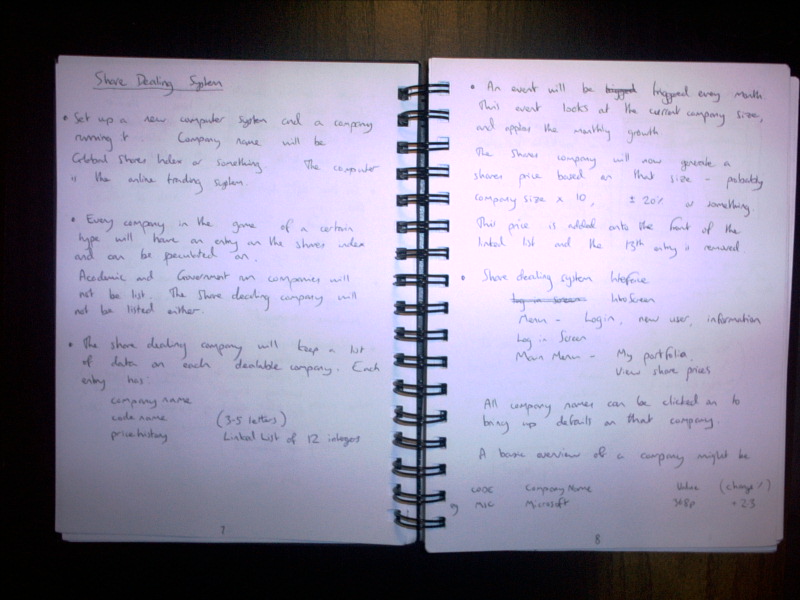 Share Dealing System
• Set up a new computer system and a company
running it Company name will be
Global Shares Index or something The computer
is the online trading system.
• Every company in the game of a certain
type will have an entry on the shares index
and can be speculated on.
Academic and Government run companies will
not be list. The share dealing company will
not be listed either.
• The share dealing company will keep a list
of data on each dealable company. Each
entry has:
company name
code name (3-5 letters)
price history Linked List of 12 integers
7
• An event will be triggered every month.
This event looks at the current company size,
and applies the monthly growth
The shares company will now generate a
shares price based on that size - probably
company size x 10, ± 20% or something.
This price is added onto the front of the
linked list and the 13th entry is removed.
• Share dealing system Interface
Log in screen Intro Screen
Menu - Login, new user, information
Log in Screen
Main Menu - My portfolio,
View share prices
All company names can be clicked on to
bring up details on that company.
A basic overview of a company might be
CODE Company Name Value (change %)
eg MIC Microsoft 368p +2.3
8